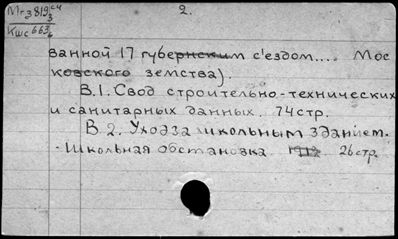 Мгз819 сч
3
2.
Кшс663
6
ванной 17 губернским с'ездом.... Мос
ковского земства).
В.1. Свод строительно-технических
и санитарных данных. 74стр.
В 2. Уход за школьным зданием.
- Школьная обстановка 1912 26стр.